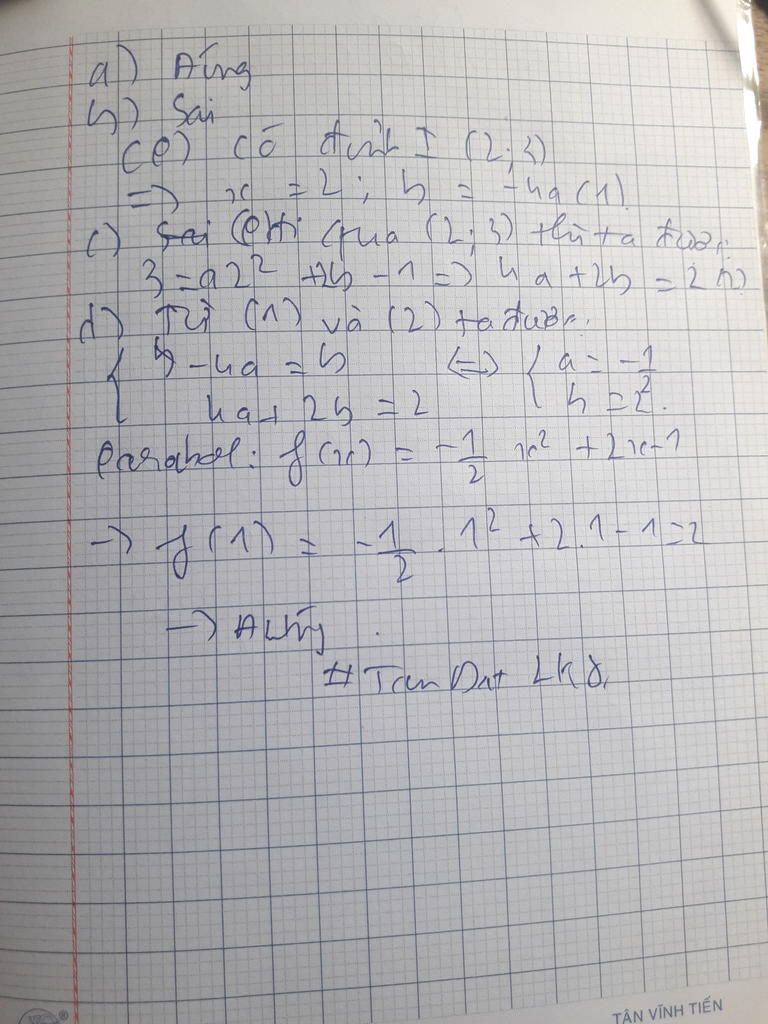 a) Đúng
b) Sai
(P) có đỉnh I (2;3)
=> x = 2; b = -4a (1)
c) Sai (P) đi qua (2;3) thì ta được:
3 = a2² + 2b - 1 => 4a + 2b = 2 (2)
d) Từ (1) và (2) ta được:
{ -4a = b <=> { a = -1/2
4a + 2b = 2 b = 2.
Parabol: f(x) = -1/2 x² + 2x - 1
-> f(1) = -1/2 . 1² + 2.1 - 1 = 2
-> Đúng.
# Tan Dat
TÂN VĨNH TIẾN